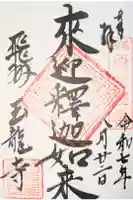 奉拝
令和七年
八月廿二日
來迎釋迦如来
飛州
玉龍寺